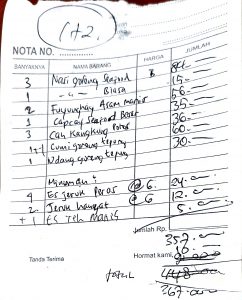 1+2.
NOTA NO.
BANYAKNYA NAMA BARANG HARGA JUMLAH
3 Nasi goreng Seafood
1 - " - Biasa 15.-
2 Fuyunghay Asam manis 56.-
1 Capcay Seafood Besar 35.-
3 Cah Kangkung Polos 36.-
1+1 Cumi goreng tepung 60.-
1 Udang goreng tepung 30.-
Minuman :
4 Es jeruk Peras @ 6. 24.-
2 Jeruk hangat @ 6. 12.-
+ 1 Es Teh Manis 5.-
Jumlah Rp.
Tanda Terima Hormat kami,
total